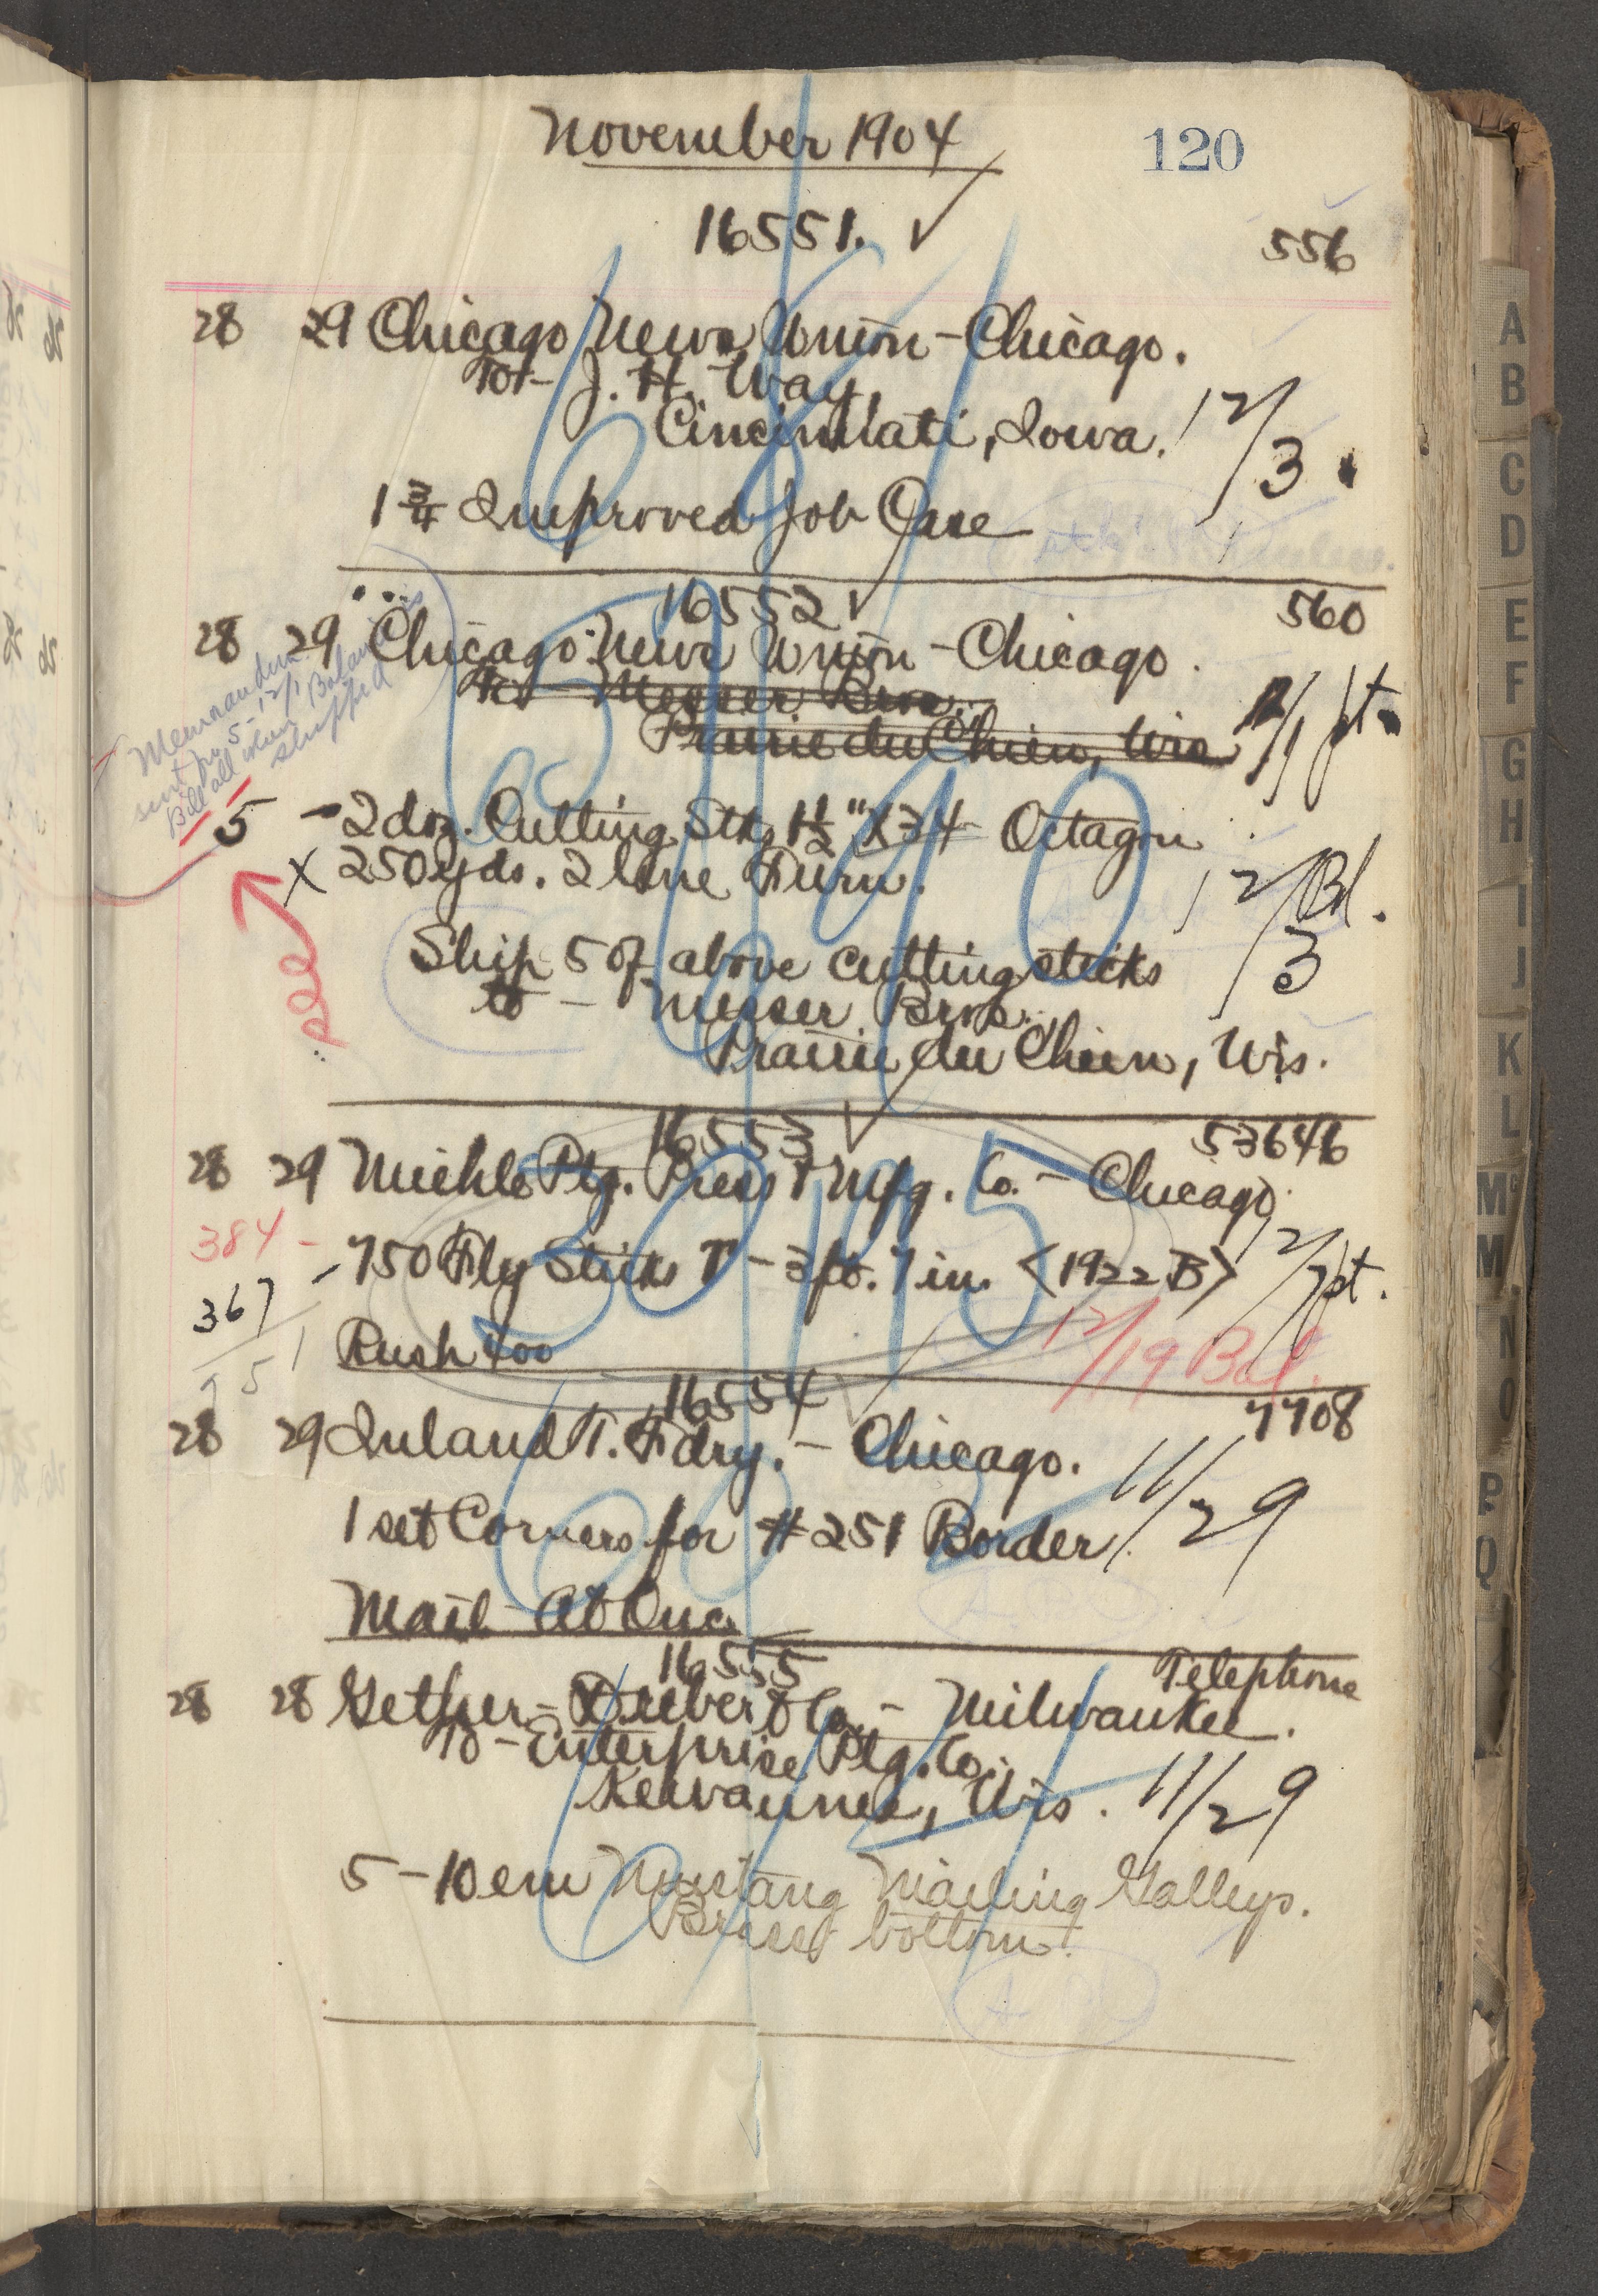 November 1904
120
16551. ✓
556
28 29 Chicago News Union - Chicago.
To - J. H. Way,
Cincinnati, Iowa.
12/3
1 3/4 Improved Job Case
16552 ✓
560
28 29 Chicago News Union - Chicago.
To - Messer Bros.
Prairie du Chien, Wis
12/1 pt.
Memorandum
sent for 5 - 12/1
Bill all when Balance
shipped
5 - 2 doz. Cutting Stks 1 1/2" X 34 Octagon
X 250 yds. 2 line Furn.
12/3 Bal.
see
Ship 5 of above cutting sticks
to - Messer Bros.
Prairie du Chien, Wis.
16553 ✓
53646
28 29 Miehle Ptg. Press & Mfg. Co. - Chicago.
384 -
- 750 Fly Sticks T - 3 ft. 7 in. <1922 B>
12/7 pt.
367
751
Rush 400
12/19 Bal.
16554 ✓
7708
28 29 Inland T. Fdry. - Chicago.
11/29
1 set Corners for #251 Border
Mail At Once
16555
Telephone
28 28 Gether - Drebert & Co. - Milwaukee.
To - Enterprise Ptg. Co.
Kewaunee, Wis.
11/29
5 - 10 em Mustang Mailing Galleys.
Brass bottom.
A
B
C
D
E
F
G
H
I
J
K
L
M
M
N
O
P
Q